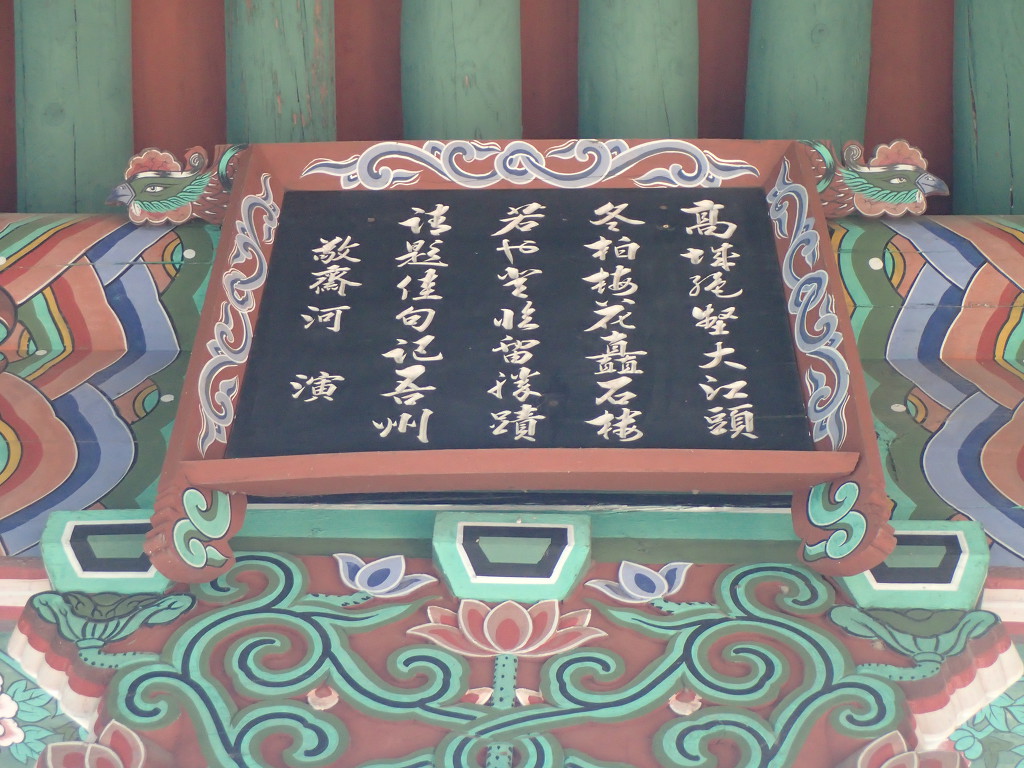 高城絶壑大江頭
冬柏梅花矗石樓
若也登臨留勝蹟
請題佳句記吾州
敬齋河演